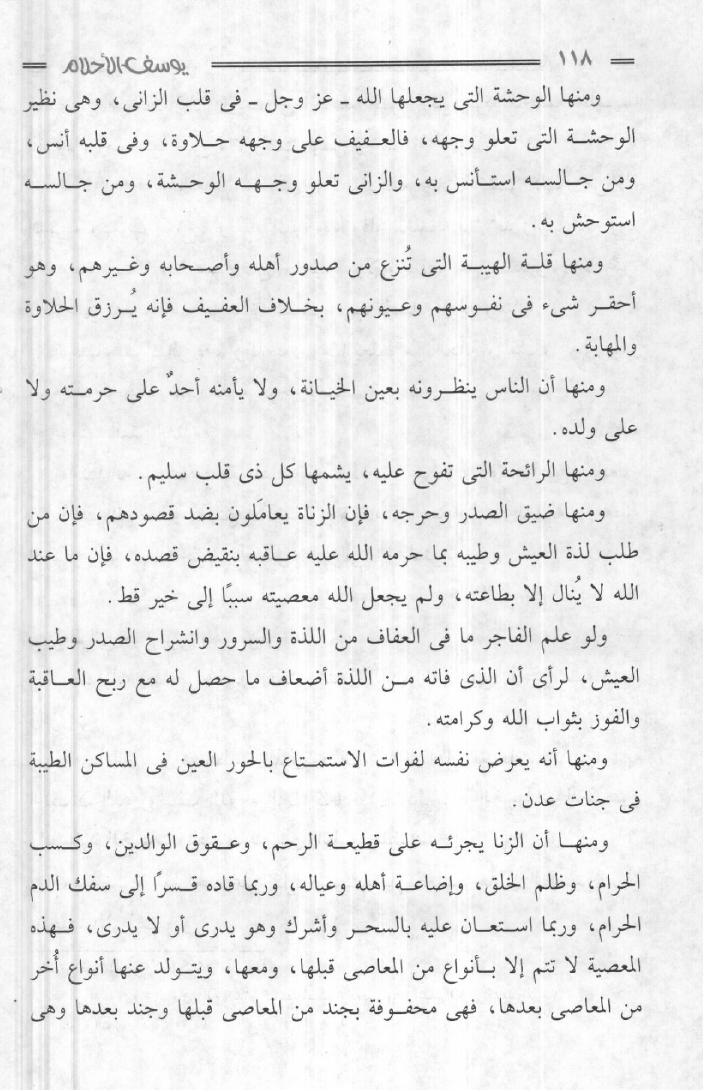 ١١٨ يوسف الأحلام
ومنها الوحشة التى يجعلها الله ـ عز وجل ـ فى قلب الزانى، وهى نظير
الوحشة التى تعلو وجهه، فالعفيف على وجهه حلاوة، وفى قلبه أنس،
ومن جالسه استأنس به، والزانى تعلو وجهه الوحشة، ومن جالسه
استوحش به.
ومنها قلة الهيبة التى تُنزع من صدور أهله وأصحابه وغيرهم، وهو
أحقر شىء فى نفوسهم وعيونهم، بخلاف العفيف فإنه يُرزق الحلاوة
والمهابة.
ومنها أن الناس ينظرونه بعين الخيانة، ولا يأمنه أحدٌ على حرمته ولا
على ولده.
ومنها الرائحة التى تفوح عليه، يشمها كل ذى قلب سليم.
ومنها ضيق الصدر وحرجه، فإن الزناة يعاملَون بضد قصودهم، فإن من
طلب لذة العيش وطيبه بما حرمه الله عليه عاقبه بنقيض قصده، فإن ما عند
الله لا يُنال إلا بطاعته، ولم يجعل الله معصيته سببًا إلى خير قط.
ولو علم الفاجر ما فى العفاف من اللذة والسرور وانشراح الصدر وطيب
العيش، لرأى أن الذى فاته من اللذة أضعاف ما حصل له مع ربح العاقبة
والفوز بثواب الله وكرامته.
ومنها أنه يعرض نفسه لفوات الاستمتاع بالحور العين فى المساكن الطيبة
فى جنات عدن.
ومنها أن الزنا يجرئه على قطيعة الرحم، وعقوق الوالدين، وكسب
الحرام، وظلم الخلق، وإضاعة أهله وعياله، وربما قاده قسرًا إلى سفك الدم
الحرام، وربما استعان عليه بالسحر وأشرك وهو يدرى أو لا يدرى، فهذه
المعصية لا تتم إلا بأنواع من المعاصى قبلها، ومعها، ويتولد عنها أنواع أُخر
من المعاصى بعدها، فهى محفوفة بجند من المعاصى قبلها وجند بعدها وهى